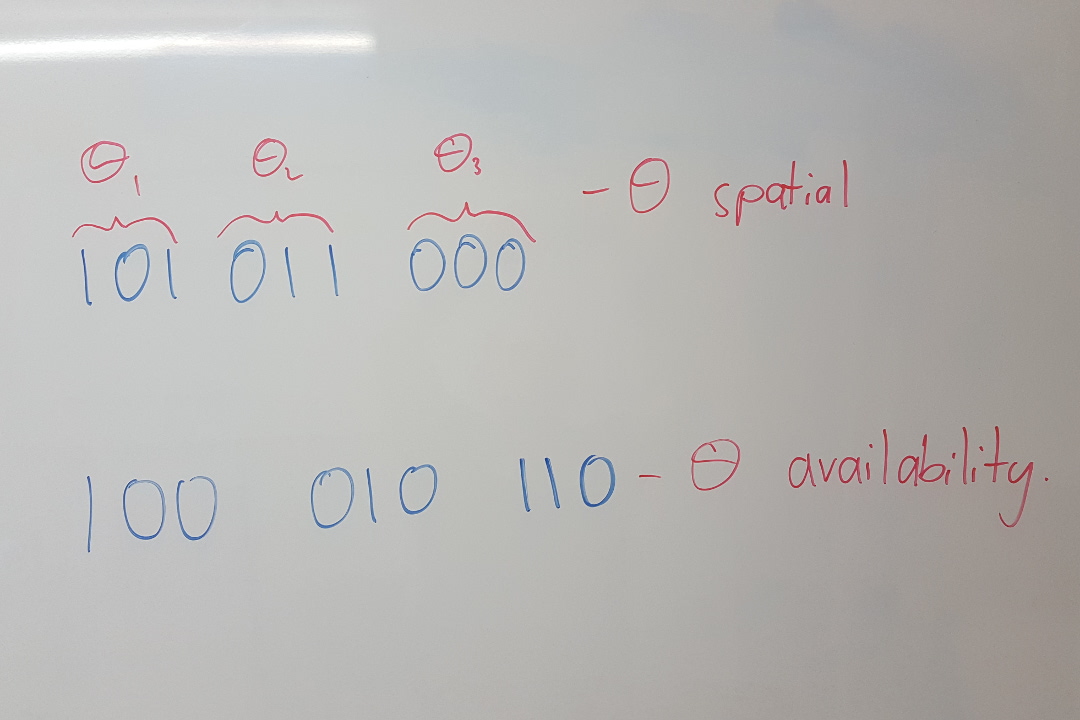 Θ₁ Θ₂ Θ₃
101 011 000 - Θ spatial
100 010 110 - Θ availability.